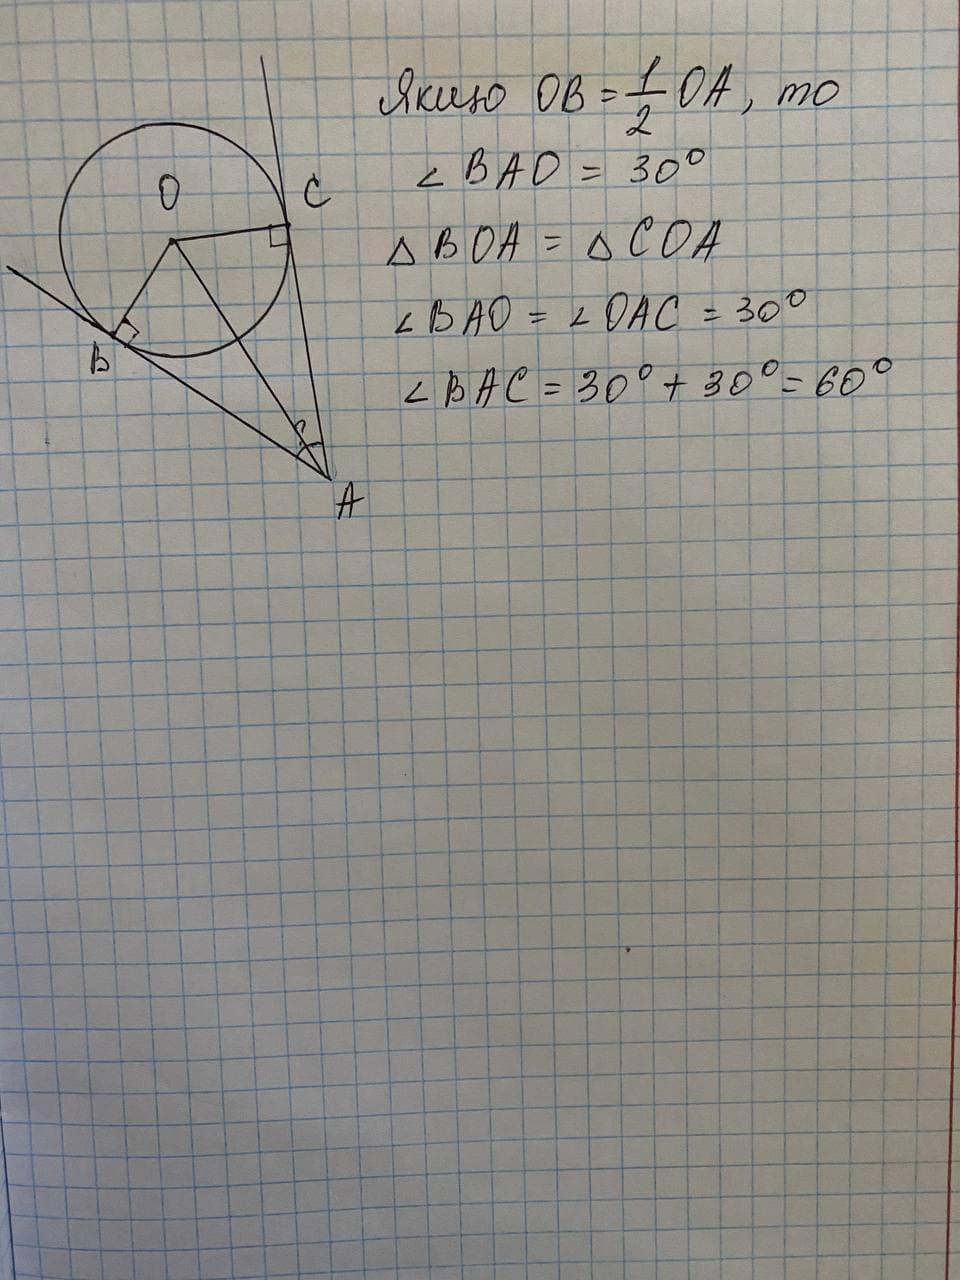 Якщо OB = 1/2 OA, то
∠ BAO = 30°
△ BOA = △ COA
∠ BAO = ∠ OAC = 30°
∠ BAC = 30° + 30° = 60°
O
C
B
A